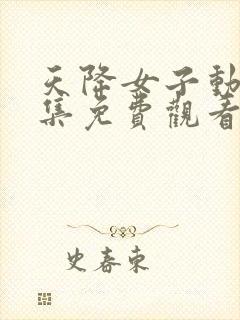 天降女子動
集免費觀看
史春東